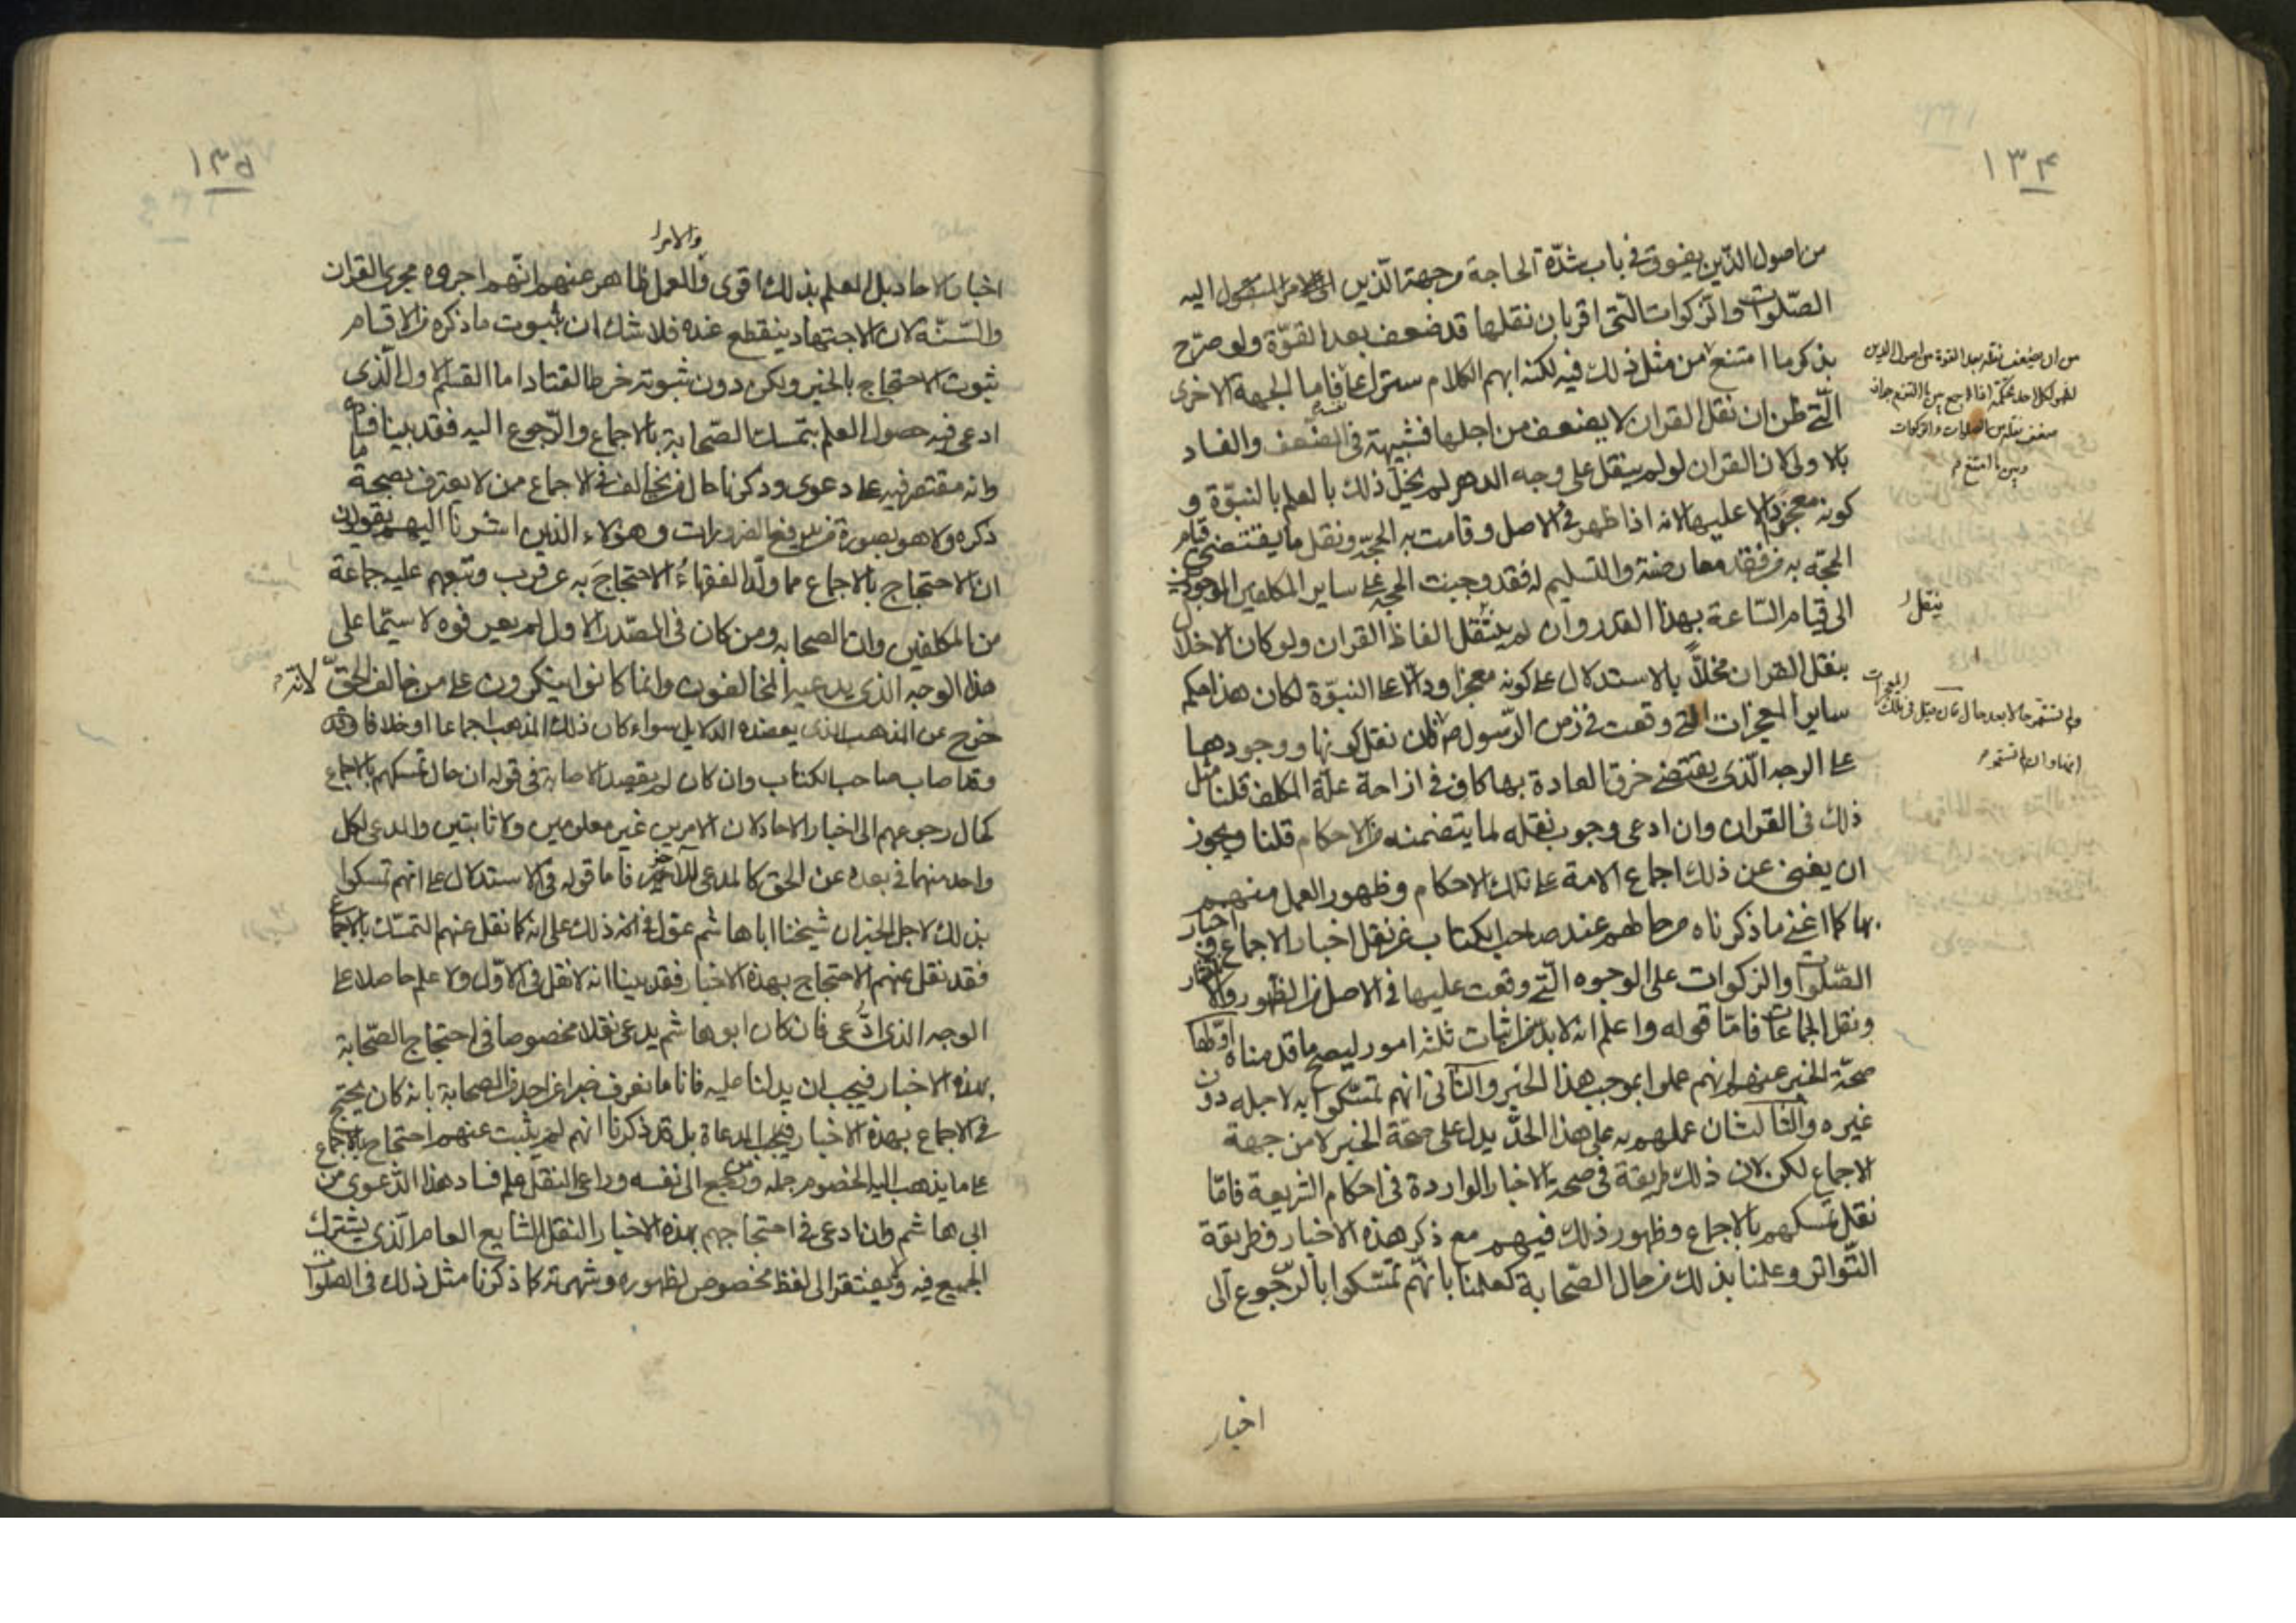 ١٣۴
من اصول الدّين يفوق في باب شدّة الحاجة وجهة الّذين اليه
الصّلوات والزكوات الّتي اقر بان نقلها قد ضعف بعد القوّة ولو صرّح
بذكر ما امتنع من مثل ذلك فيه لكنه ابهم الكلام ستراً فاما الجهة الاخرى
الّتي ظن ان نقل القران لا يضعف من اجلها فشبيهة في الضعف والفساد
بالاولى لان القران لو لم ينقل على وجه الدهر لم يخلّ ذلك بالعلم بالنبوّة و
كونه معجزا دالا عليها لانه اذا ظهر في الاصل وقامت به الحجّة ونقل ما يقتضي قيام
الحجّة به من فقد معارضة والتسليم له فقد وجبت الحجة على ساير المكلفين الموجودين
الى قيام السّاعة بهذا القدر وان لم ينقل الفاظ القران ولو كان الاخلال
بنقل القران مخلاً بالاستدلال على كونه معجزا ودالا على النبوّة لكان هذا حكم
ساير المعجزات التي وقعت في زمن الرّسول ص فان نقل كونها ووجودها
على الوجه الّذي يقتضي خرق العادة بها كاف في ازاحة علّة المكلف قلنا مثل
ذلك في القران وان ادعى وجوب نقله لما يتضمنه من الاحكام قلنا ويجوز
ان يغني عن ذلك اجماع الامة على تلك الاحكام وظهور العمل منهم
بها كما اغنى ما ذكرناه من حالهم عند صاحب الكتاب عن نقل اخبار الاجماع واخبار
الصّلوات والزكوات على الوجوه الّتي وقعت عليها في الاصل من الظهور والانتشار
ونقل الجماعات فامّا قوله واعلم انه لا بدّ من اثبات ثلثه امور ليصح ما قدمناه اوّلها
صحّة الخبر عنهم انهم عملوا بموجب هذا الخبر والثاني انهم تمسّكوا به لاجله دون
غيره والثالث ان عملهم به على هذا الحدّ يدل على صحّة الخبر لا من جهة
الاجماع لكن لان ذلك طريقة في صحة الاخبار الواردة في احكام الشريعة فامّا
نقل تمسكهم بالاجماع وظهور ذلك فيهم مع ذكر هذه الاخبار فطريقة
التّواتر وعلمنا بذلك من حال الصّحابة كعلمنا بانّهم تمسّكوا بالرّجوع الى
اخبار
ينقل
١٣۵
والامر
اخبار الاحاد بل العلم بذلك اقوى والعمل ظاهر عنهم انّهم اجروه مجرى القران
والسّنّة لان الاجتهاد ينقطع عنده فلا شك ان ثبوت ما ذكره من الاقسام
ثبوت الاحتجاج بالخبر ويكن دون ثبوته خرط القتاد اما القسم الاول الّذي
ادعى فيه حصول العلم بتمسك الصّحابة بالاجماع والرّجوع اليه فقد بينا فيه ما
وانه مقتصر فيه على دعوى وذكرنا حال من يخالف في الاجماع ممن لا يعترف بصحة ما
ذكره ولا هو بصورة من يدفع الضرورات وهؤلاء الذين اشرنا اليهم يقولون
ان الاحتجاج بالاجماع مما ولّد الفقهاءُ الاحتجاجَ به عن قرب وتبعهم عليه جماعة
من المكلفين وان الصحابه ومن كان في الصّدر الاول لم يعرفوه لا سيّما على
هذا الوجه الذي يدعيه المخالفون وانما كانوا ينكرون على من خالف الحقّ لانه
خرج عن المذهب الذي يعضده الدلايل سواء كان ذلك المذهب اجماعا او خلافا وقد
وقد اصاب صاحب الكتاب وان كان لم يقصد الاصابة في قوله ان حال تمسكهم بالاجماع
كحال رجوعهم الى اخبار الاحاد لان الامرين غير معلومين ولا ثابتين والمدعي لكل
واحد منهما في بعده عن الحق كالمدعي للاخر فاما قوله في الاستدلال على انهم تمسكوا
بذلك لاجل الخبر ان شيخنا ابا هاشم عوّل في ذلك على انه كما نقل عنهم التمسّك بالاجماع
فقد نقل عنهم الاحتجاج بهذه الاخبار فقد بينا انه لا نقل في الاوّل ولا علم حاصلا على
الوجه الذي ادُّعى فان كان ابو هاشم يدعي نقلا مخصوصا في احتجاج الصّحابة
بهذه الاخبار فيجب ان يدلنا عليه فانا ما نعرف خبرا عن احد من الصحابة بانه كان يحتج
في الاجماع بهذه الاخبار بل قد ذكرنا انهم لم يثبت عنهم احتجاج بالاجماع
على ما يذهب اليه الخصوم جمله ومن رجع الى نفسه وراعى النقل علم فساد هذا الدّعوى من
ابي هاشم وان ادعى في احتجاجهم بهذه الاخبار النقل الشايع العام الّذي يشترك
الجميع فيه ولا يفتقر الى لفظ مخصوص لظهوره وشهرته كما ذكرنا مثل ذلك في الصلوات